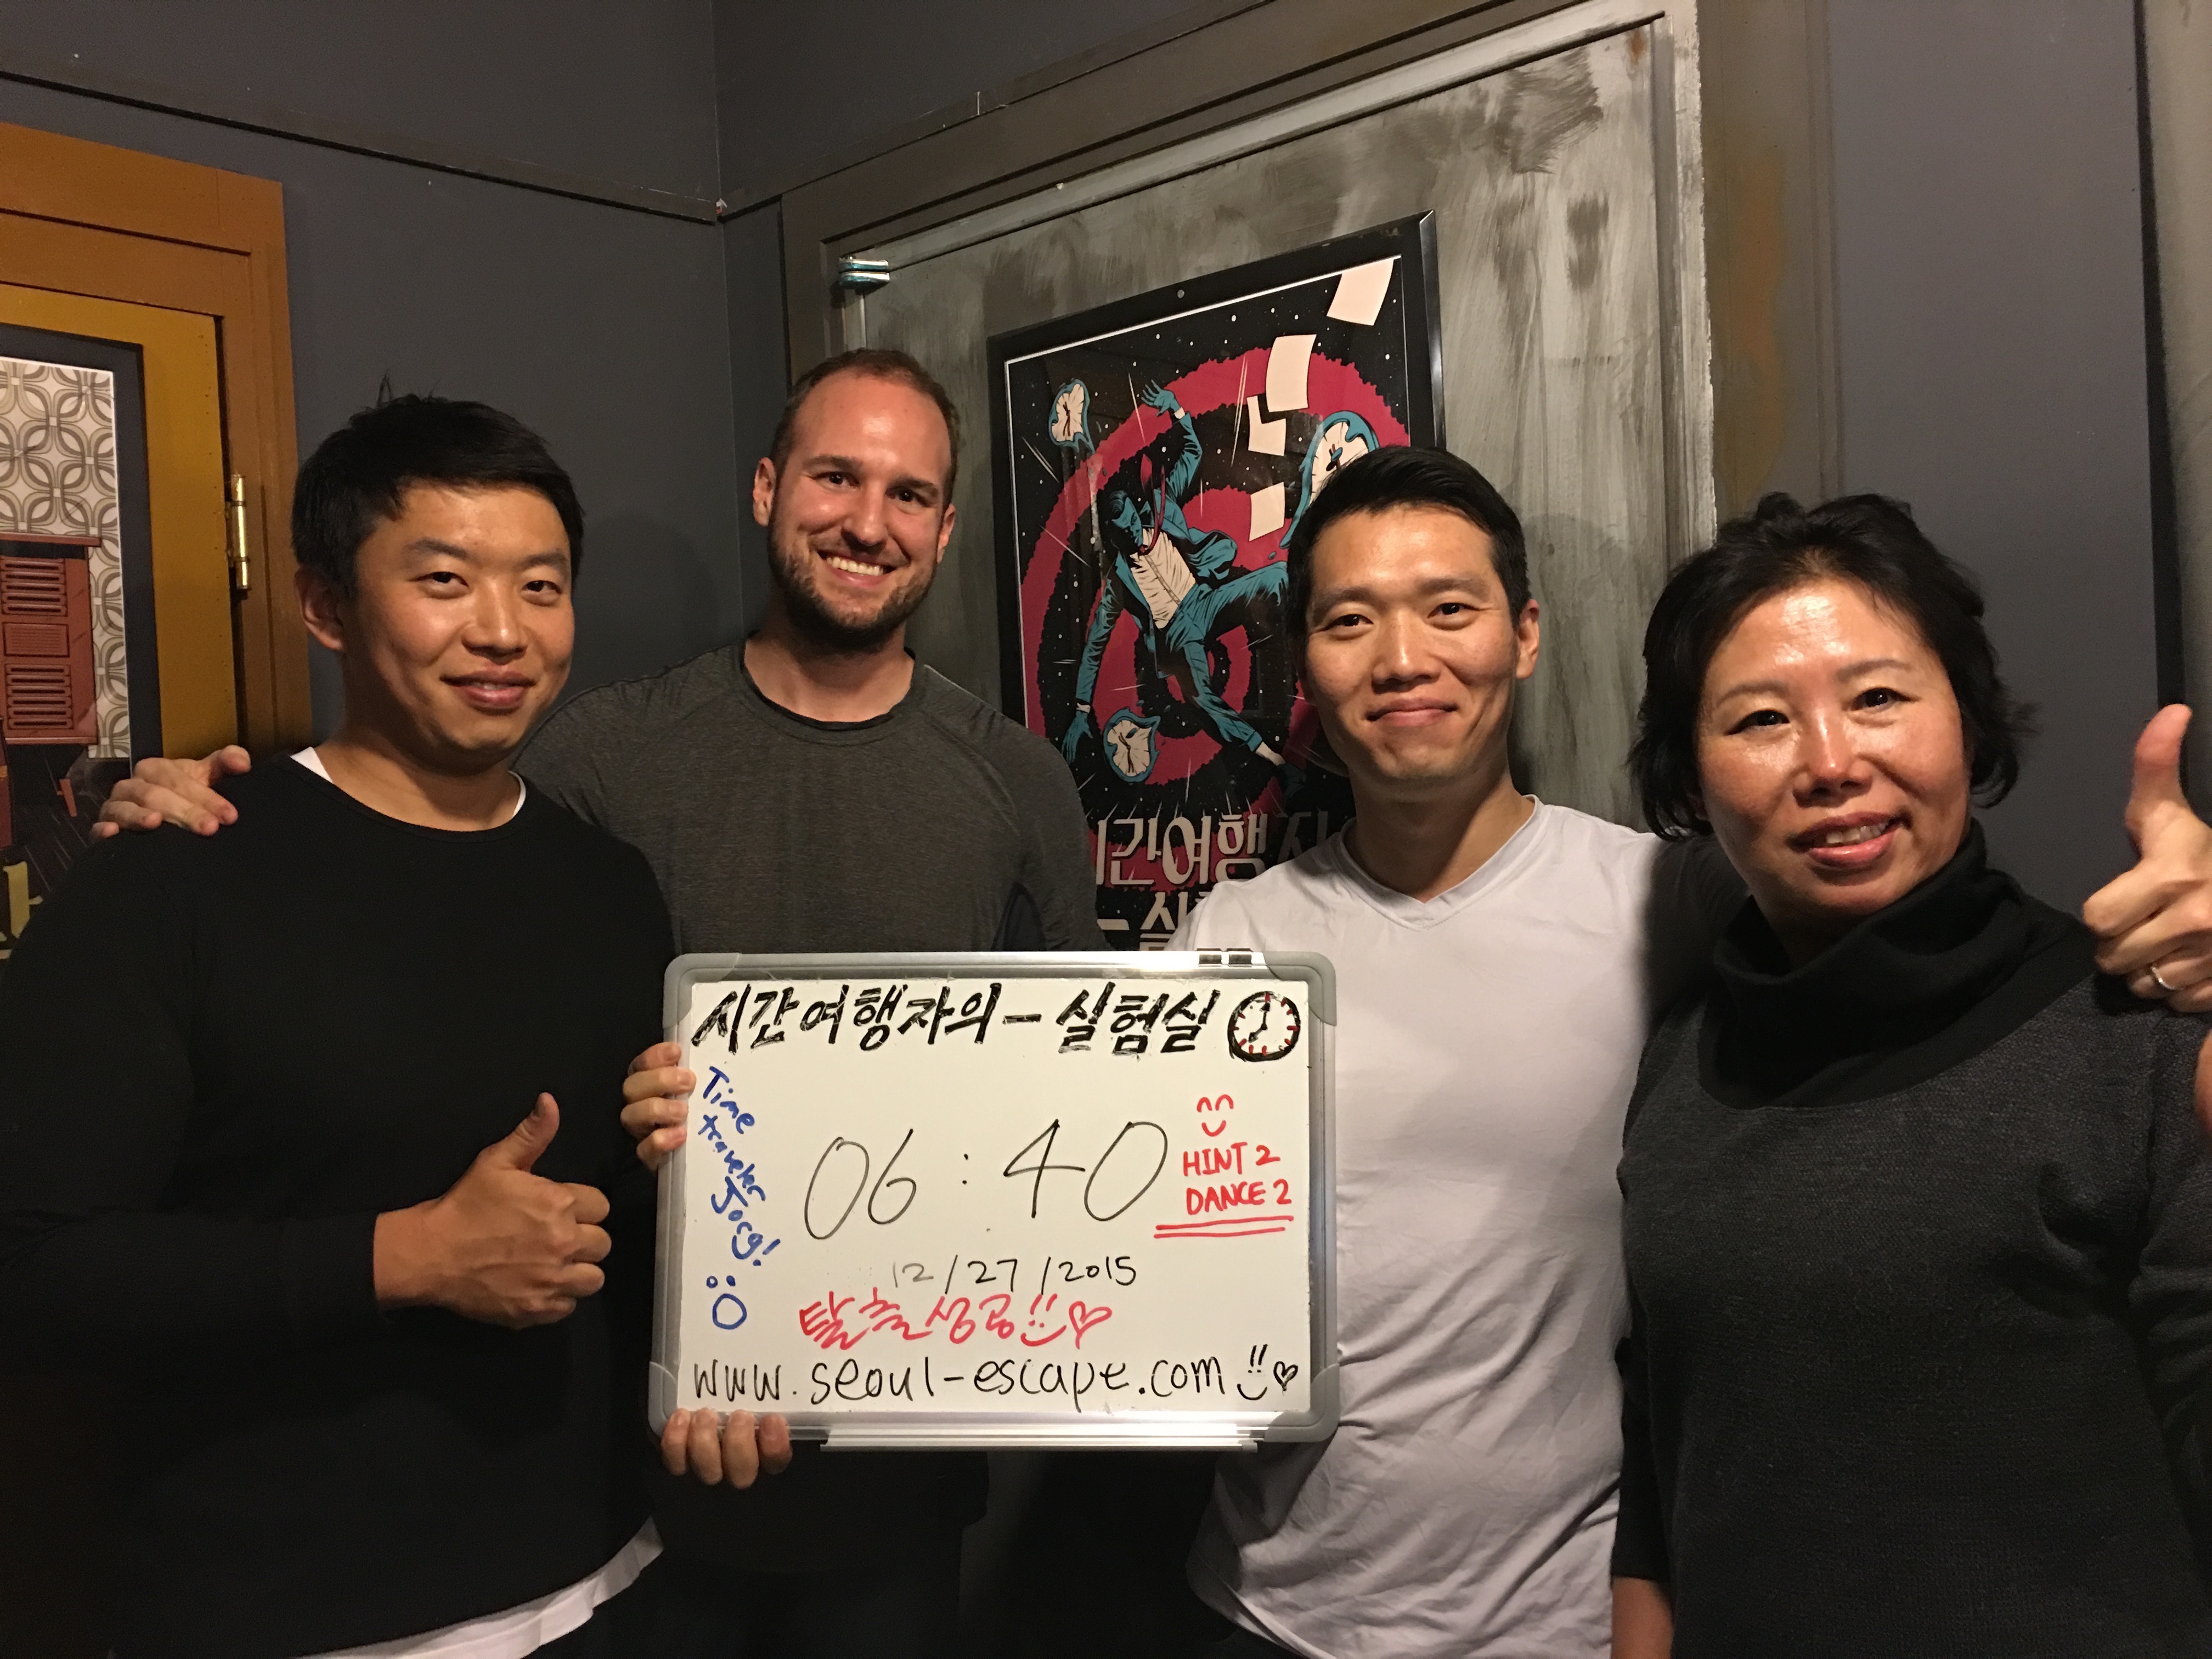 간여행
시간여행자의 - 실험실
Time
traveler
Jorg!
06:40
HINT 2
DANCE 2
12/27/2015
탈출성공!!
www.seoul-escape.com